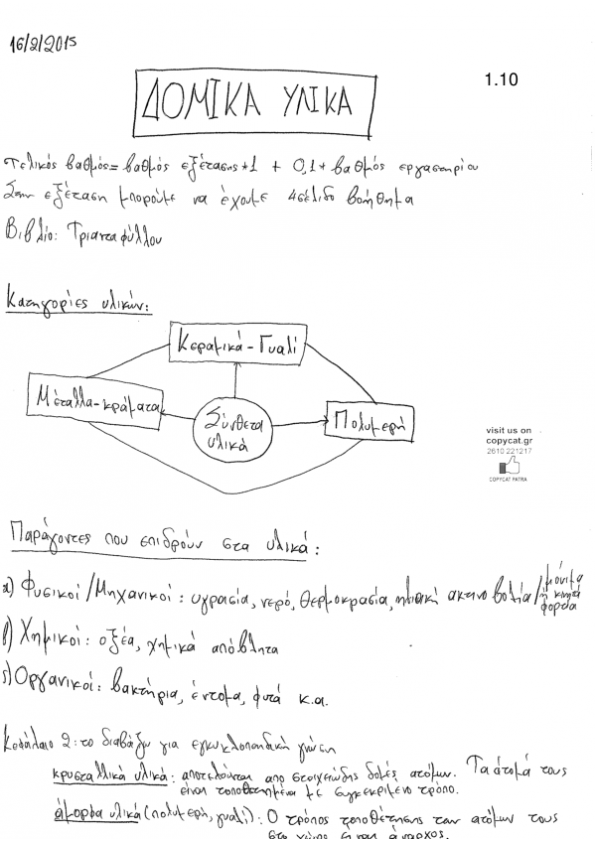 16/2/2015
1.10
ΔΟΜΙΚΑ ΥΛΙΚΑ
Τελικός βαθμός = βαθμός εξέτασης * 1 + 0,1 * βαθμός εργαστηρίου
Στην εξέταση μπορούμε να έχουμε 4σέλιδο βοήθημα
Βιβλίο: Τριανταφύλλου
Κατηγορίες υλικών:
Κεραμικά - Γυαλί
Μέταλλα - κράματα
Σύνθετα
υλικά
Πολυμερή
visit us on
copycat.gr
2610 221217
COPYCAT PATRA
Παράγοντες που επιδρούν στα υλικά:
α) Φυσικοί / Μηχανικοί: υγρασία, νερό, θερμοκρασία, ηλιακή ακτινοβολία / μόνιμα ή κινητά φορτία
β) Χημικοί: οξέα, χημικά απόβλητα
γ) Οργανικοί: βακτήρια, έντομα, φυτά κ.α.
Κεφάλαιο 2: το διαβάζω για εγκυκλοπαιδική γνώση
κρυσταλλικά υλικά: αποτελούνται απο στοιχειώδης δομές ατόμων. Τα άτομά τους
είναι τοποθετημένα με συγκεκριμένο τρόπο.
άμορφα υλικά (πολυμερή, γυαλί): Ο τρόπος τοποθέτησης των ατόμων τους
στο χώρο είναι άναρχος.